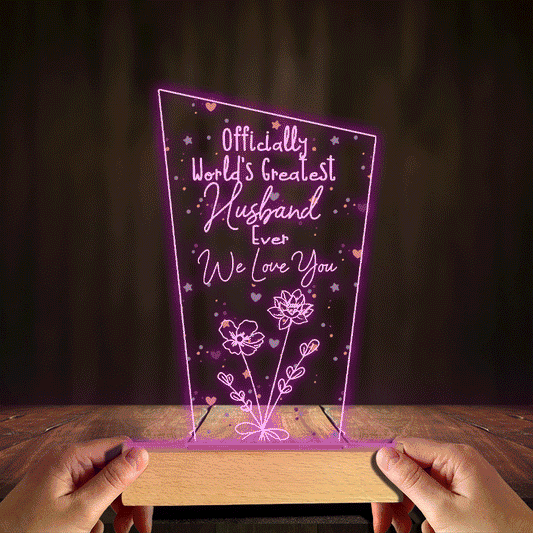 Officially
World's Greatest
Husband
Ever
We Love You